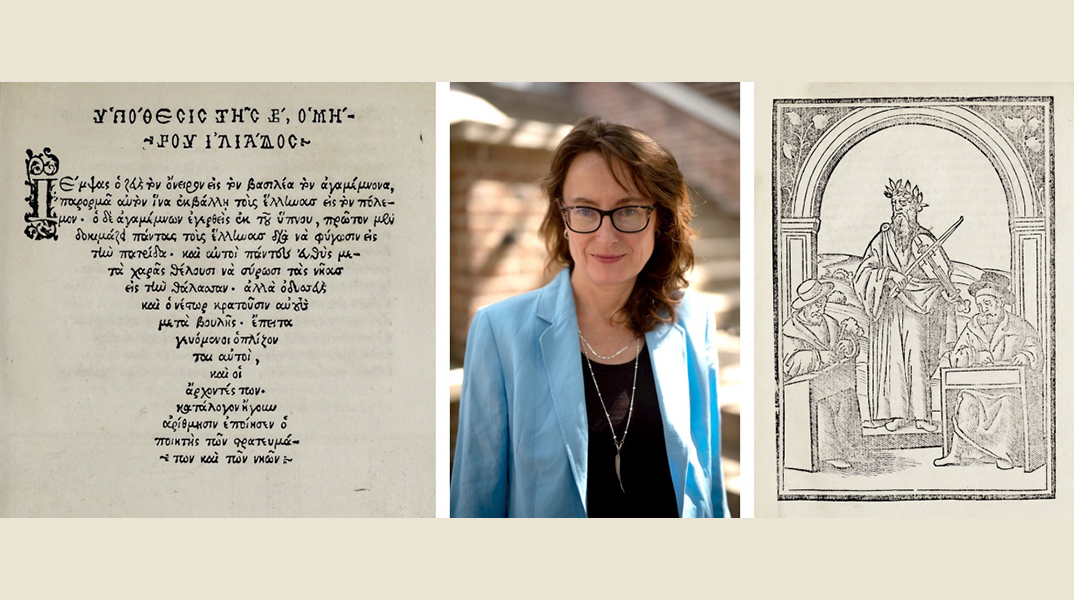 ὙΠΌΘΕϹΙϹ ΤΗ͂Ϲ Β, ὉΜΉ-
ΡΟΥ ἸΛΙΆΔΟϹ
ΠΈμψας ὁ ζεὺς τὸν ὄνειρον εἰς τὸν βασιλέα τὸν ἀγαμέμνονα,
παρορμᾶ αὐτὸν ἵνα ἐκβάλλη τοὺς ἕλλίωας εἰς τὸν πόλε-
μον· ὁ δὲ ἀγαμέμνων ἐγερθεὶς ἐκ τοῦ ὕπνου, πρῶτον μὲν
δοκιμάζει πάντας τοὺς ἕλλίωας διὰ νὰ φύγωσιν εἰς
τὴν πατρίδα· καὶ αὐτοὶ πάντες εὐθὺς με-
τὰ χαρᾶς θέλουσι νὰ σύρωσι τὰς νῆας
εἰς τὴν θάλασσαν· ἀλλὰ ὀδυσσεὺς
καὶ ὁ νέστωρ κρατοῦσιν αὐτοὺς
μετὰ βουλῆς· ἔπειτα
γευόμενοι ὁπλίζον
ται αὐτοί,
καὶ οἱ
ἄρχοντές των·
κατάλογον ἤγουν
ἀρίθμησιν ἐποίησεν ὁ
ποιητὴς τῶν φρατευμά-
των καὶ τῶν νηῶν